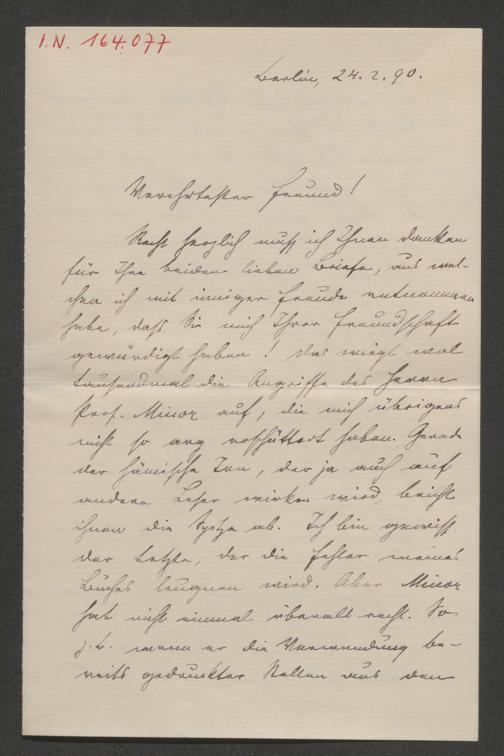 I.N. 164.077
Berlin, 24.2.90.
Verehrtester Freund!
Recht herzlich muß ich Ihnen danken
für Ihre beiden lieben Briefe, aus wel-
chen ich mit inniger Freude entnommen
habe, daß Sie mich Ihrer Freundschaft
gewürdigt haben! Das wiegt wol
tausendmal die Angriffe des Herrn
Prof. Minor auf, die mich übrigens
nicht so arg erschüttert haben. Gerade
der hämische Ton, der ja auch auf
andere Leser wirken wird, bricht
ihnen die Spitze ab. Ich bin gewiß
der Letzte, der die Fehler meines
Buches leugnen wird. Aber Minor
hat nicht einmal überall recht. So
z.B. wenn er die Verwendung be-
reits gedruckter Stellen aus den